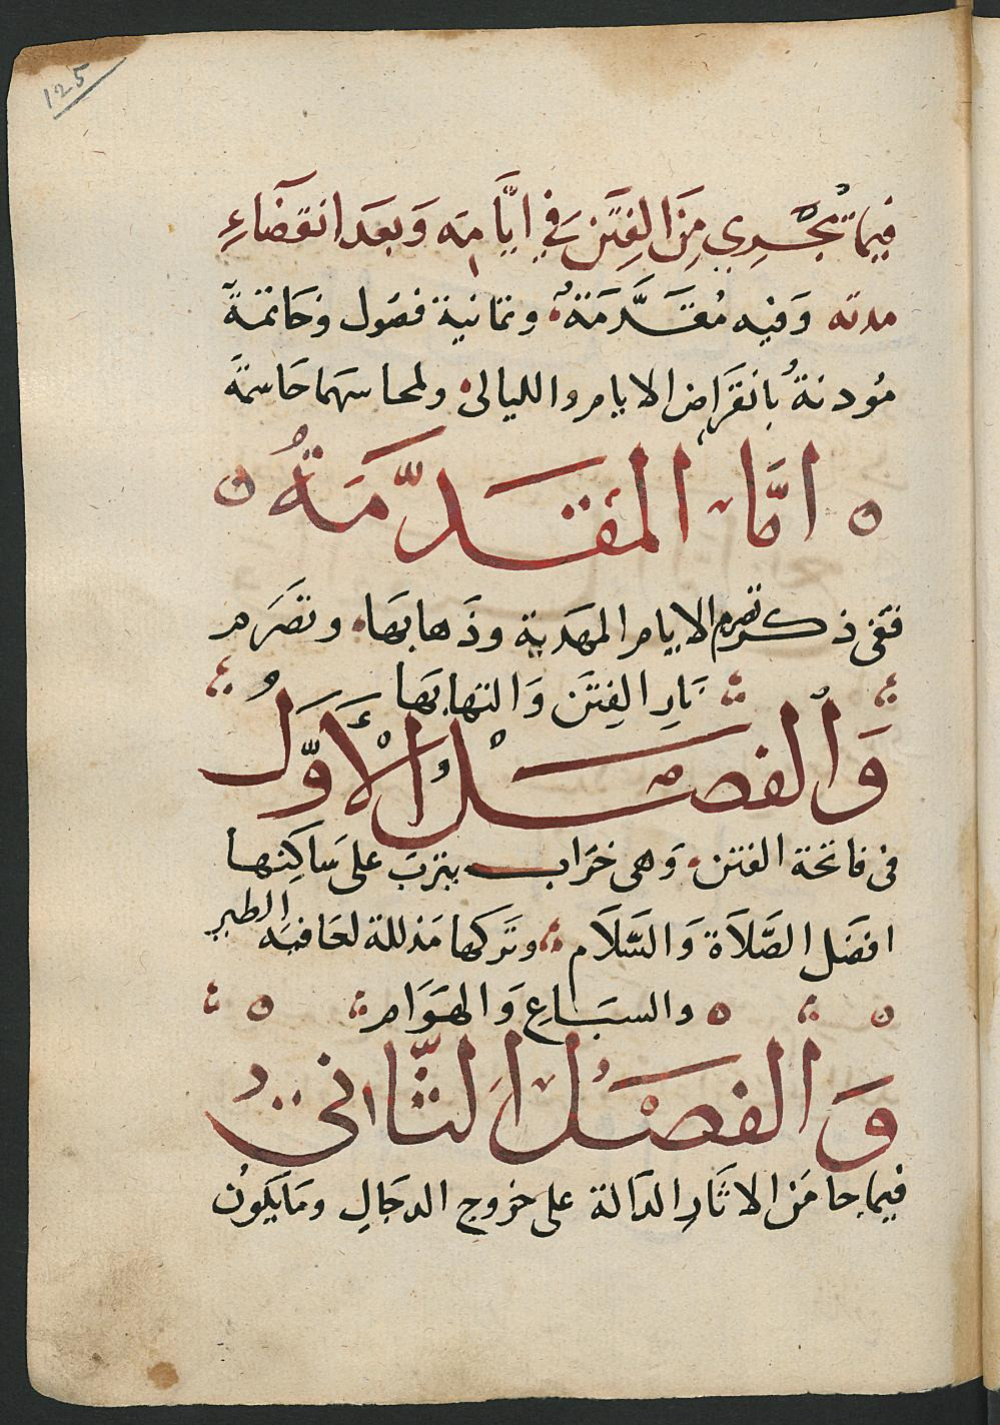 125
فيما تجري مِنَ الفِتَن في ايَّامِه وَبعَد انقضَاءِ
مدته وَفيه مُقَدَّمَةٌ وثمانية فصُول وخَاتمَةً
مُوذنةُ بانقرَاض الايام والليالى ولمحاسنهما حَاسمةً
امَّا المقَدّمَةُ
ففى ذكر تصرم الايام المهَدية وذَهابهَا وتضَرم
نَارِ الفِتَن وَالتهابها
وَالفصْلُ الأَوّلُ
فى فاتحة الفتن وَهى خرَاب يثربَ على سَاكِنها
افضَل الصَّلاَة وَالسَّلاَم وتركها مَذللة لعَافيَه الطير
والسبَاعِ وَالهوَام
وَالفصْلُ الثّاني
فيما جا مَن الاثَارِ الدَالة على خروج الدجَالِ ومَا يَكونُ